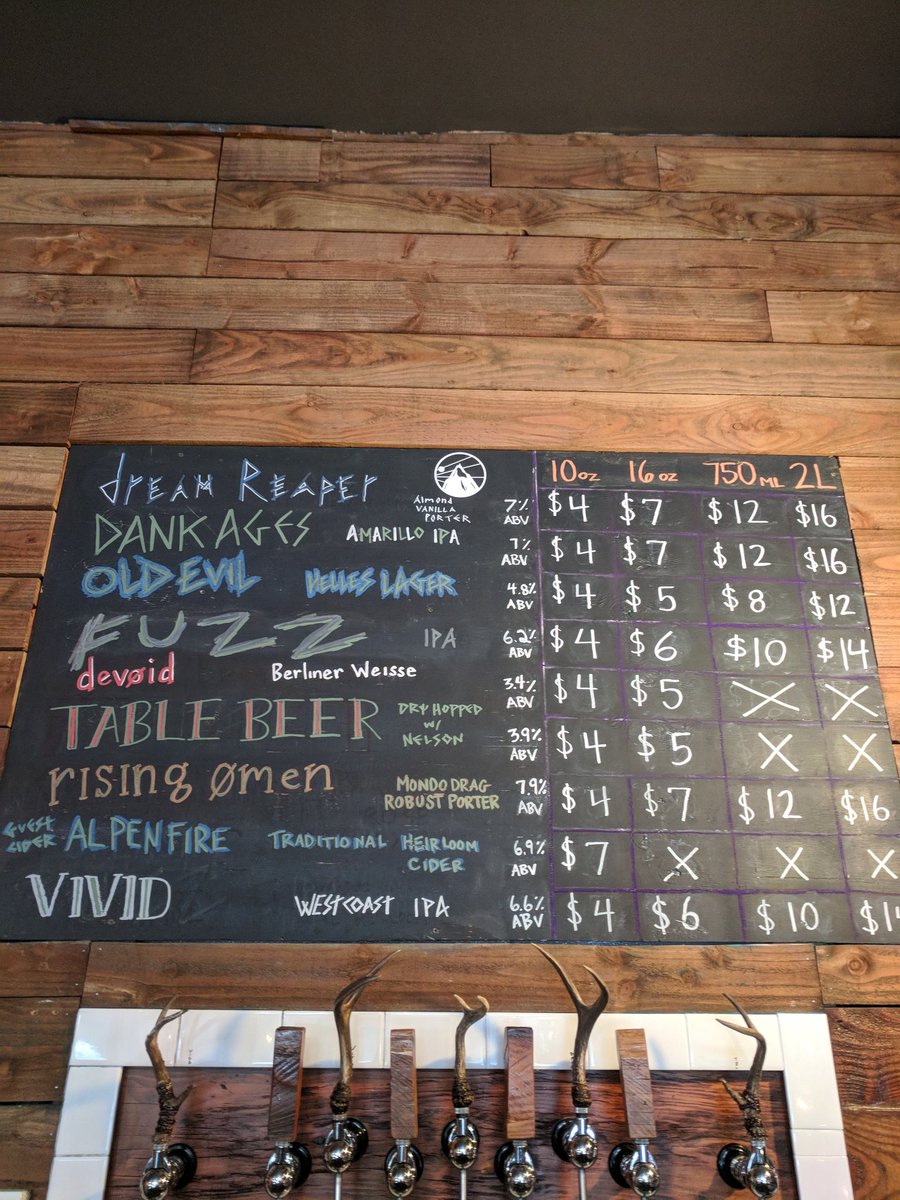 10oz 16oz 750ML 2L
dream Reaper Almond VANILLA PORTER 7% ABV $4 $7 $12 $16
DANK AGES AMARILLO IPA 7% ABV $4 $7 $12 $16
OLD EVIL HELLES LAGER 4.8% ABV $4 $5 $8 $12
FUZZ IPA 6.2% ABV $4 $6 $10 $14
devøid Berliner Weisse 3.4% ABV $4 $5 X X
TABLE BEER DRY HOPPED w/ NELSON 3.9% ABV $4 $5 X X
rising ømen MONDO DRAG ROBUST PORTER 7.9% ABV $4 $7 $12 $16
GUEST CIDER ALPENFIRE TRADITIONAL HEIRLOOM CIDER 6.9% ABV $7 X X X
VIVID WEST COAST IPA 6.6% ABV $4 $6 $10